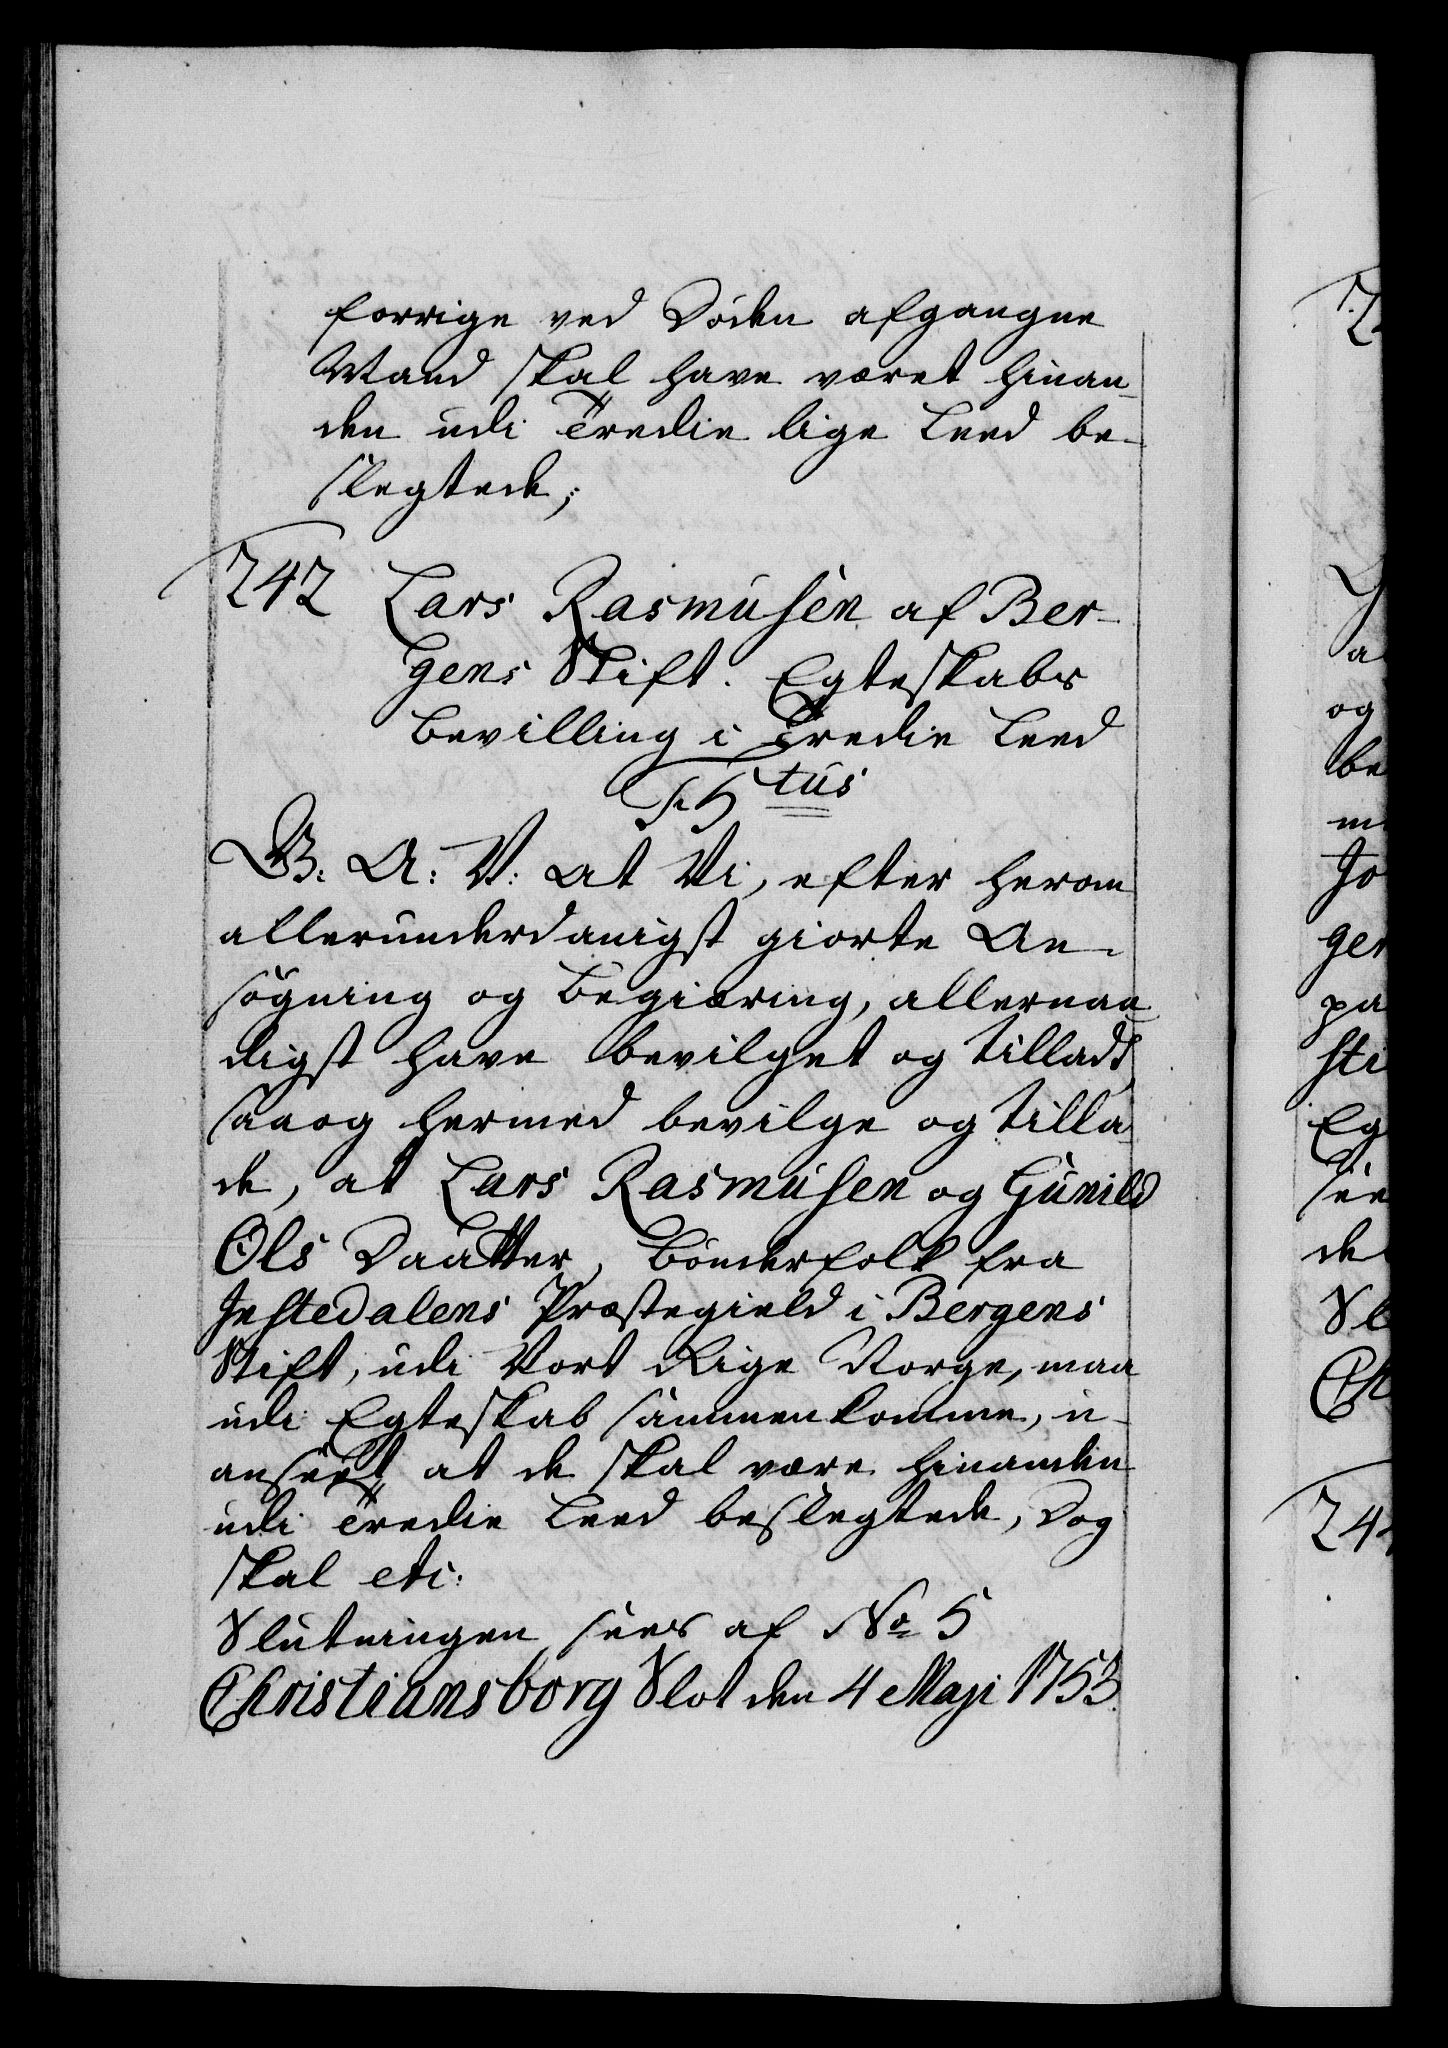 forrige ved Döden afgangne
Mand skal have været hinan-
den udi Tredie lige Leed be-
slegtede;
242 Lars Rasmusen af Ber-
gens Stift. Egteskabs
bevilling i Tredie Leed
F. 5tus
G: A: V: At Vi, efter herom
allerunderdanigst giorte An-
søgning og Begiæring, allernaa-
digst have bevilget og tilladt
saa og hermed bevilge og tilla-
de, at Lars Rasmusen og Gunild
Ols Daatter, Bönderfolk fra
Jostedalens Præstegield i Bergens
Stift, udi Vort Rige Norge, maa
udi Egteskab sammenkomme, u-
anseet at de skal være hinanden
udi Tredie Leed beslegtede, Dog
skal etc:
Slutningen sees af No 5
Christiansborg Slot den 4 Maji 1753.
a
og
be
Jo
ger
pa
sti
Eg
seе
de
Sl
Ch
244